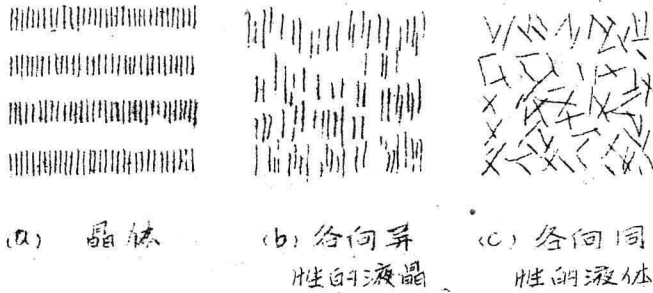 (a) 晶体
(b) 各向异
性的液晶
(c) 各向同
性的液体